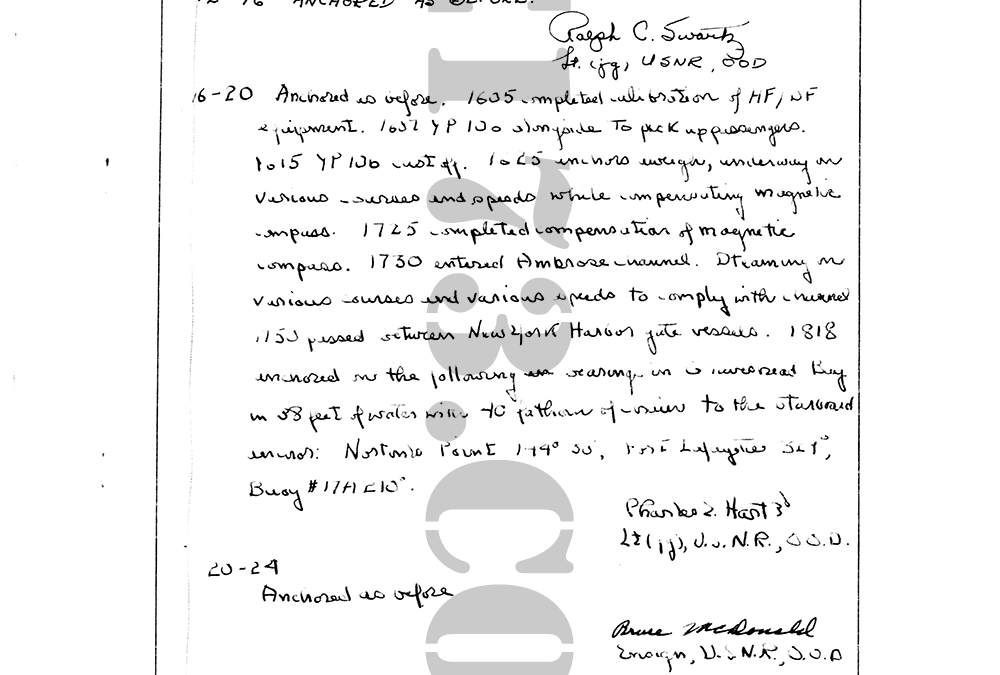 12-16 ANCHORED AS BEFORE.
Ralph C. Swartz
Lt. (jg), USNR, OOD
16-20 Anchored as before. 1635 completed calibration of HF/DF
equipment. YP alongside to pick up passengers.
YP cast off. anchors aweigh, underway on
various courses and speeds while compensating magnetic
compass. 1725 completed compensation of magnetic
compass. 1730 entered Ambrose channel. Steaming on
various courses and various speeds to comply with channel
passed between New York Harbor gate vessels. 1818
anchored on the following bearings in Gravesend Bay
in 38 feet of water with fathoms of chain to the starboard
anchor: Nortons Point Fort Lafayette
Buoy #17A 210°.
Charles Z. Hart 3d
Lt(jg), U.S.N.R., O.O.D.
20-24
Anchored as before
Bruce McDonald
Ensign, U.S.N.R., O.O.D